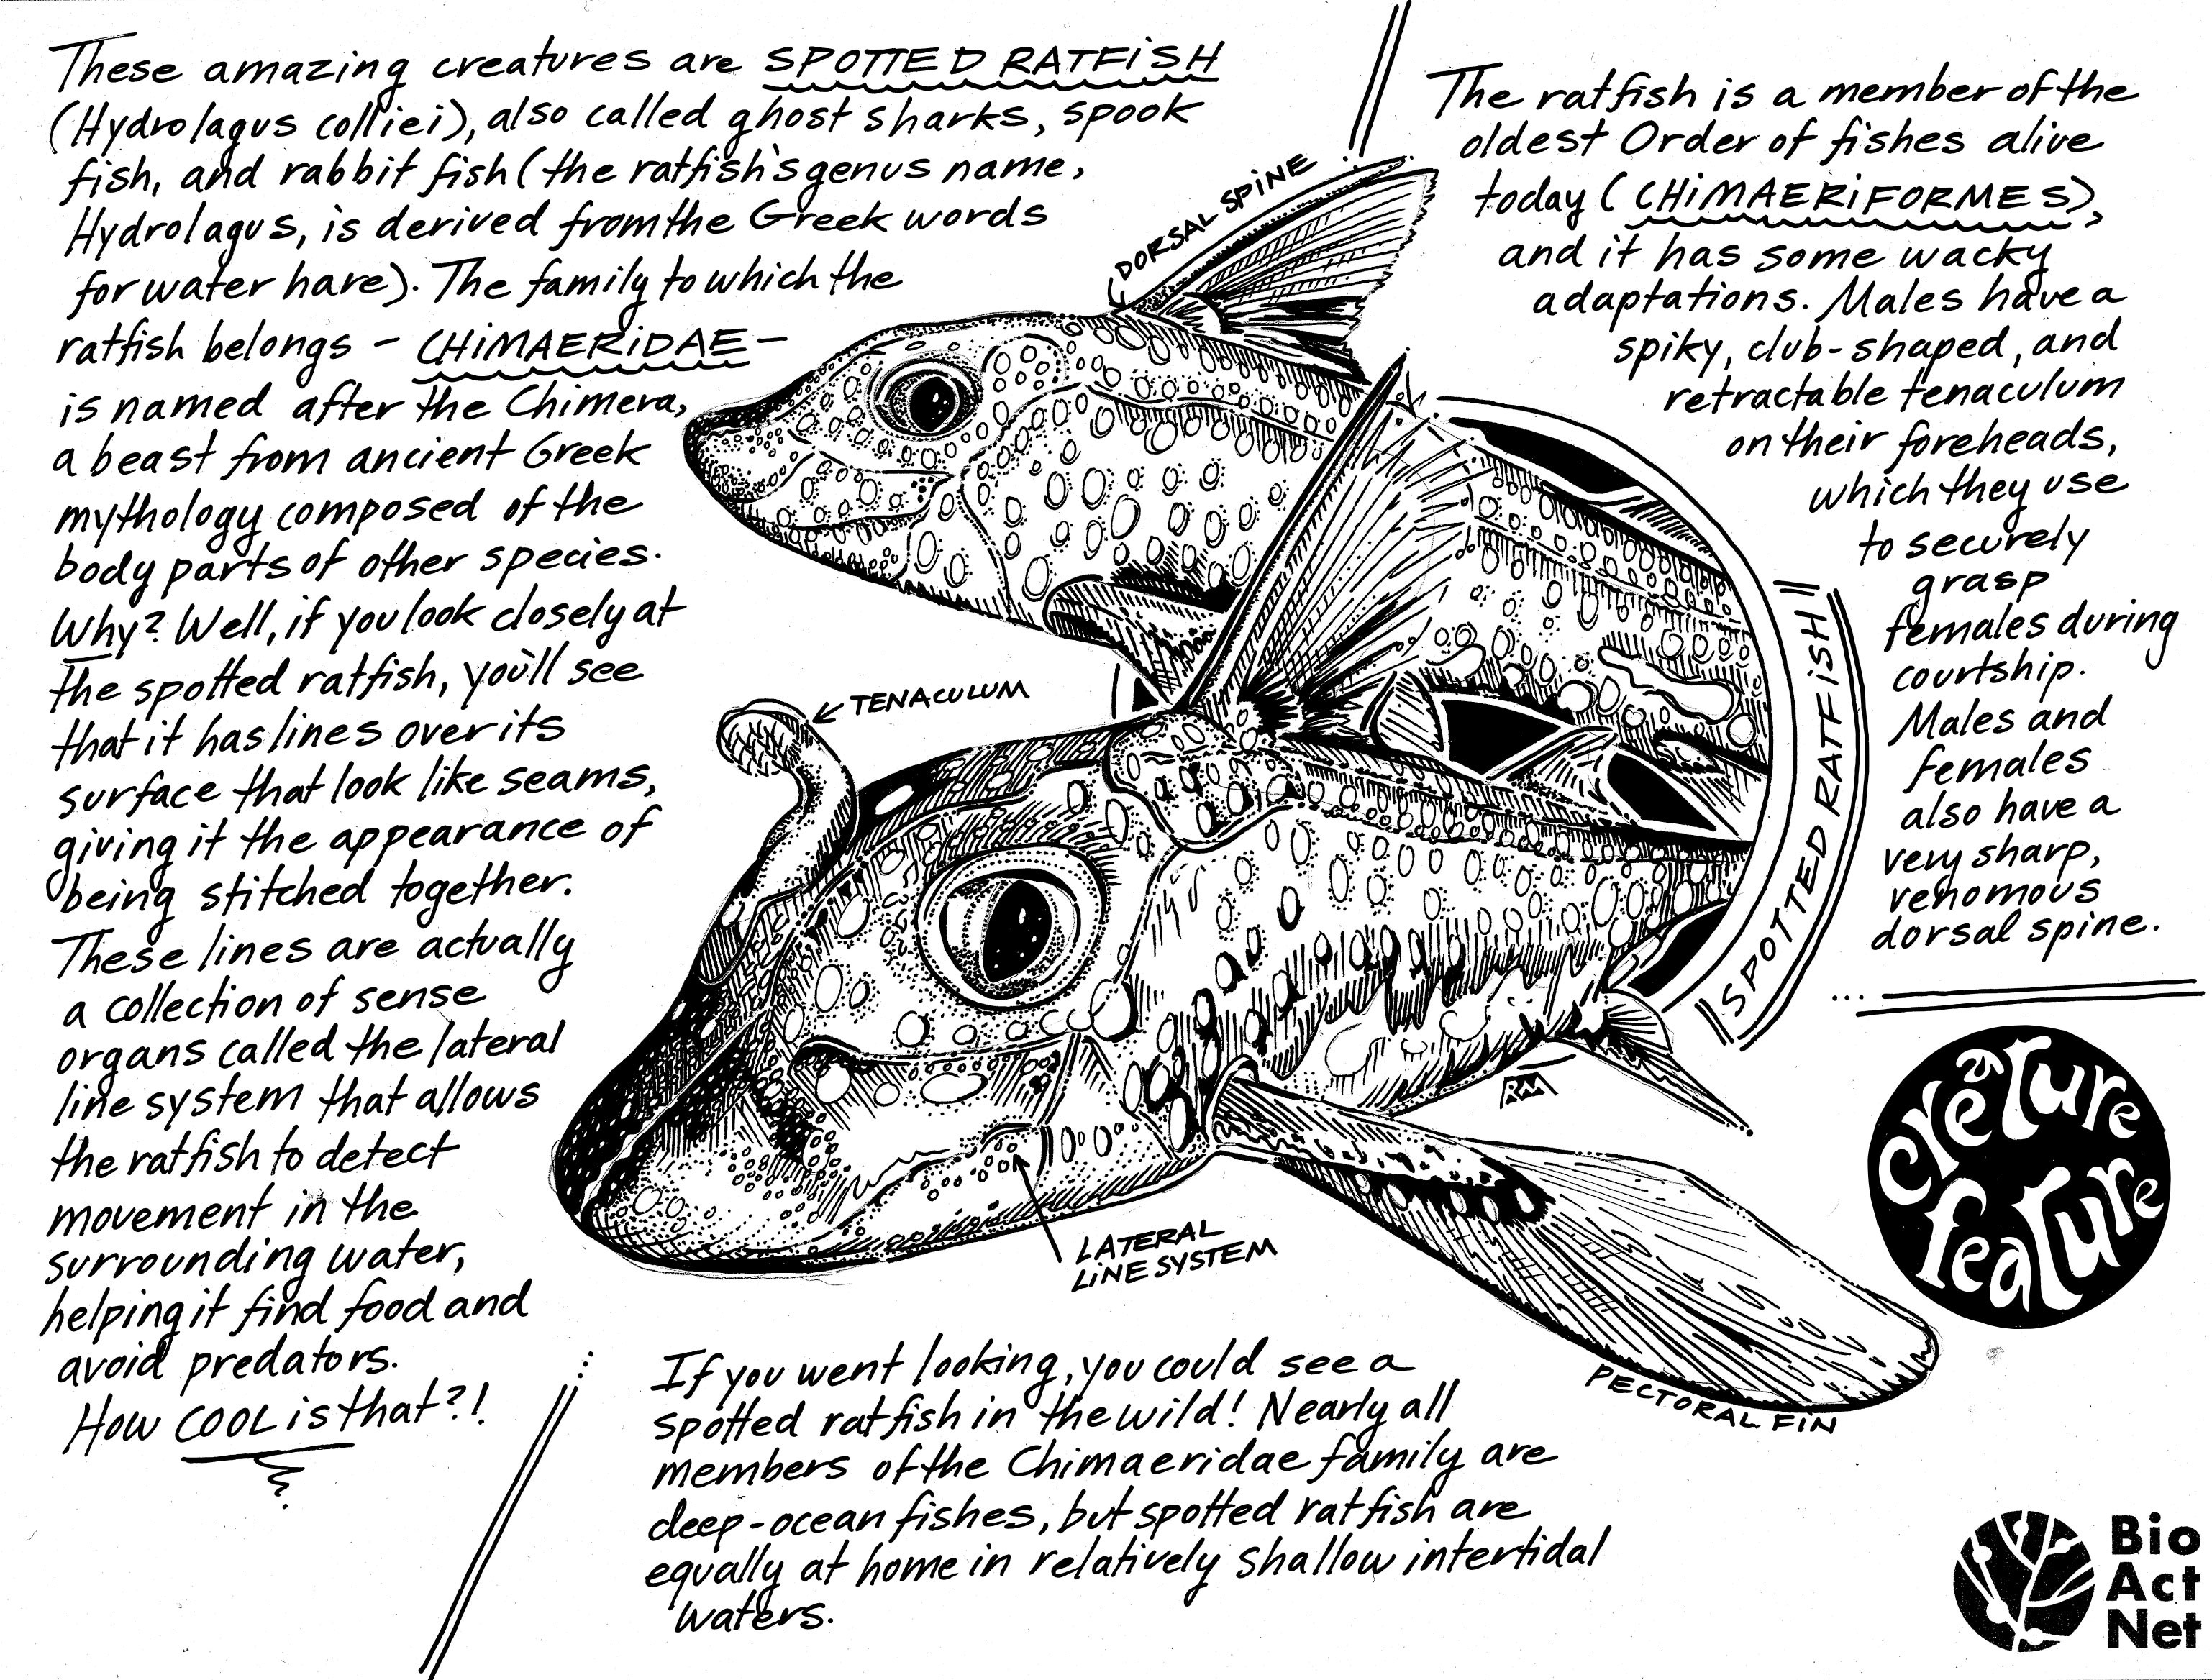 These amazing creatures are SPOTTED RATFISH
(Hydrolagus colliei), also called ghost sharks, spook
fish, and rabbit fish (the ratfish's genus name,
Hydrolagus, is derived from the Greek words
for water hare). The family to which the
ratfish belongs - CHIMAERIDAE -
is named after the Chimera,
a beast from ancient Greek
mythology composed of the
body parts of other species.
Why? Well, if you look closely at
the spotted ratfish, you'll see
that it has lines over its
surface that look like seams,
giving it the appearance of
being stitched together.
These lines are actually
a collection of sense
organs called the lateral
line system that allows
the ratfish to detect
movement in the
surrounding water,
helping it find food and
avoid predators.
How COOL is that?!
DORSAL SPINE
TENACULUM
LATERAL
LINE SYSTEM
PECTORAL FIN
SPOTTED RATFISH
RM
The ratfish is a member of the
oldest Order of fishes alive
today (CHIMAERIFORMES),
and it has some wacky
adaptations. Males have a
spiky, club-shaped, and
retractable tenaculum
on their foreheads,
which they use
to securely
grasp
females during
courtship.
Males and
females
also have a
very sharp,
venomous
dorsal spine.
creature
feature
If you went looking, you could see a
spotted ratfish in the wild! Nearly all
members of the Chimaeridae family are
deep-ocean fishes, but spotted ratfish are
equally at home in relatively shallow intertidal
waters.
Bio
Act
Net